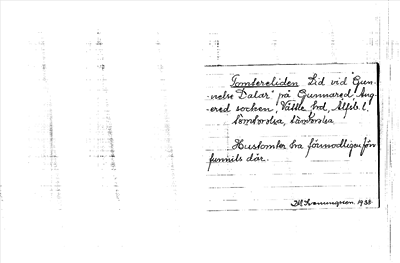 Tomtereliden Lid vid "Gun-
nelse Dalar" på Gunnared, Ang-
ered socken, Vättle hd, Älfsb. l.
Hustomter ha förmodligen förr
funnits där.
1938